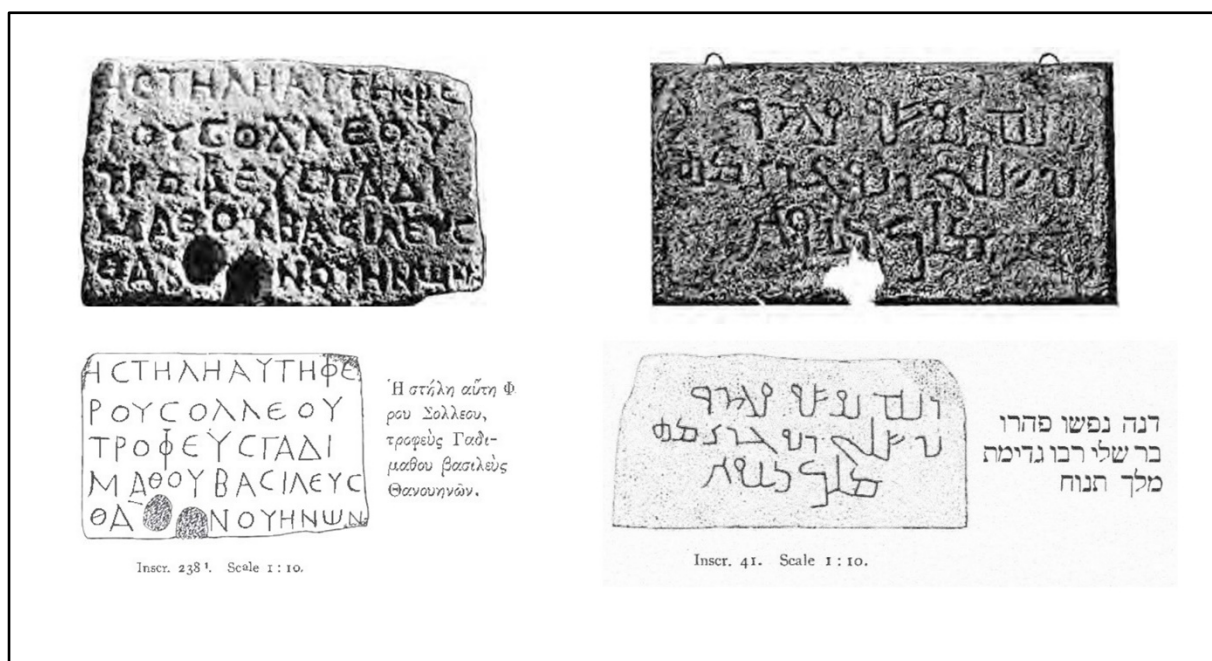 ΗϹΤΗΛΗΑΥΤΗΦΕ
ΡΟΥϹΟΛΛΕΟΥ
ΤΡΟΦΕΥϹΓΑΔΙ
ΜΑΘΟΥΒΑϹΙΛΕΥϹ
ΘΑ ΝΟΥΗΝΩΝ
ΗϹΤΗΛΗΑΥΤΗΦΕ
ΡΟΥϹΟΛΛΕΟΥ
ΤΡΟΦΕΥϹΓΑΔΙ
ΜΑΘΟΥΒΑϹΙΛΕΥϹ
ΘΑ ΝΟΥΗΝΩΝ
Ἡ στήλη αὕτη Φ
ρου Σολλεου,
τροφεὺς Γαδι-
μαθου βασιλεὺς
Θανουηνῶν.
Inscr. 238¹. Scale 1 : 10.
דנה נפשו פהרו
בר שלי רבו גדימת
מלך תנוח
Inscr. 41. Scale 1 : 10.